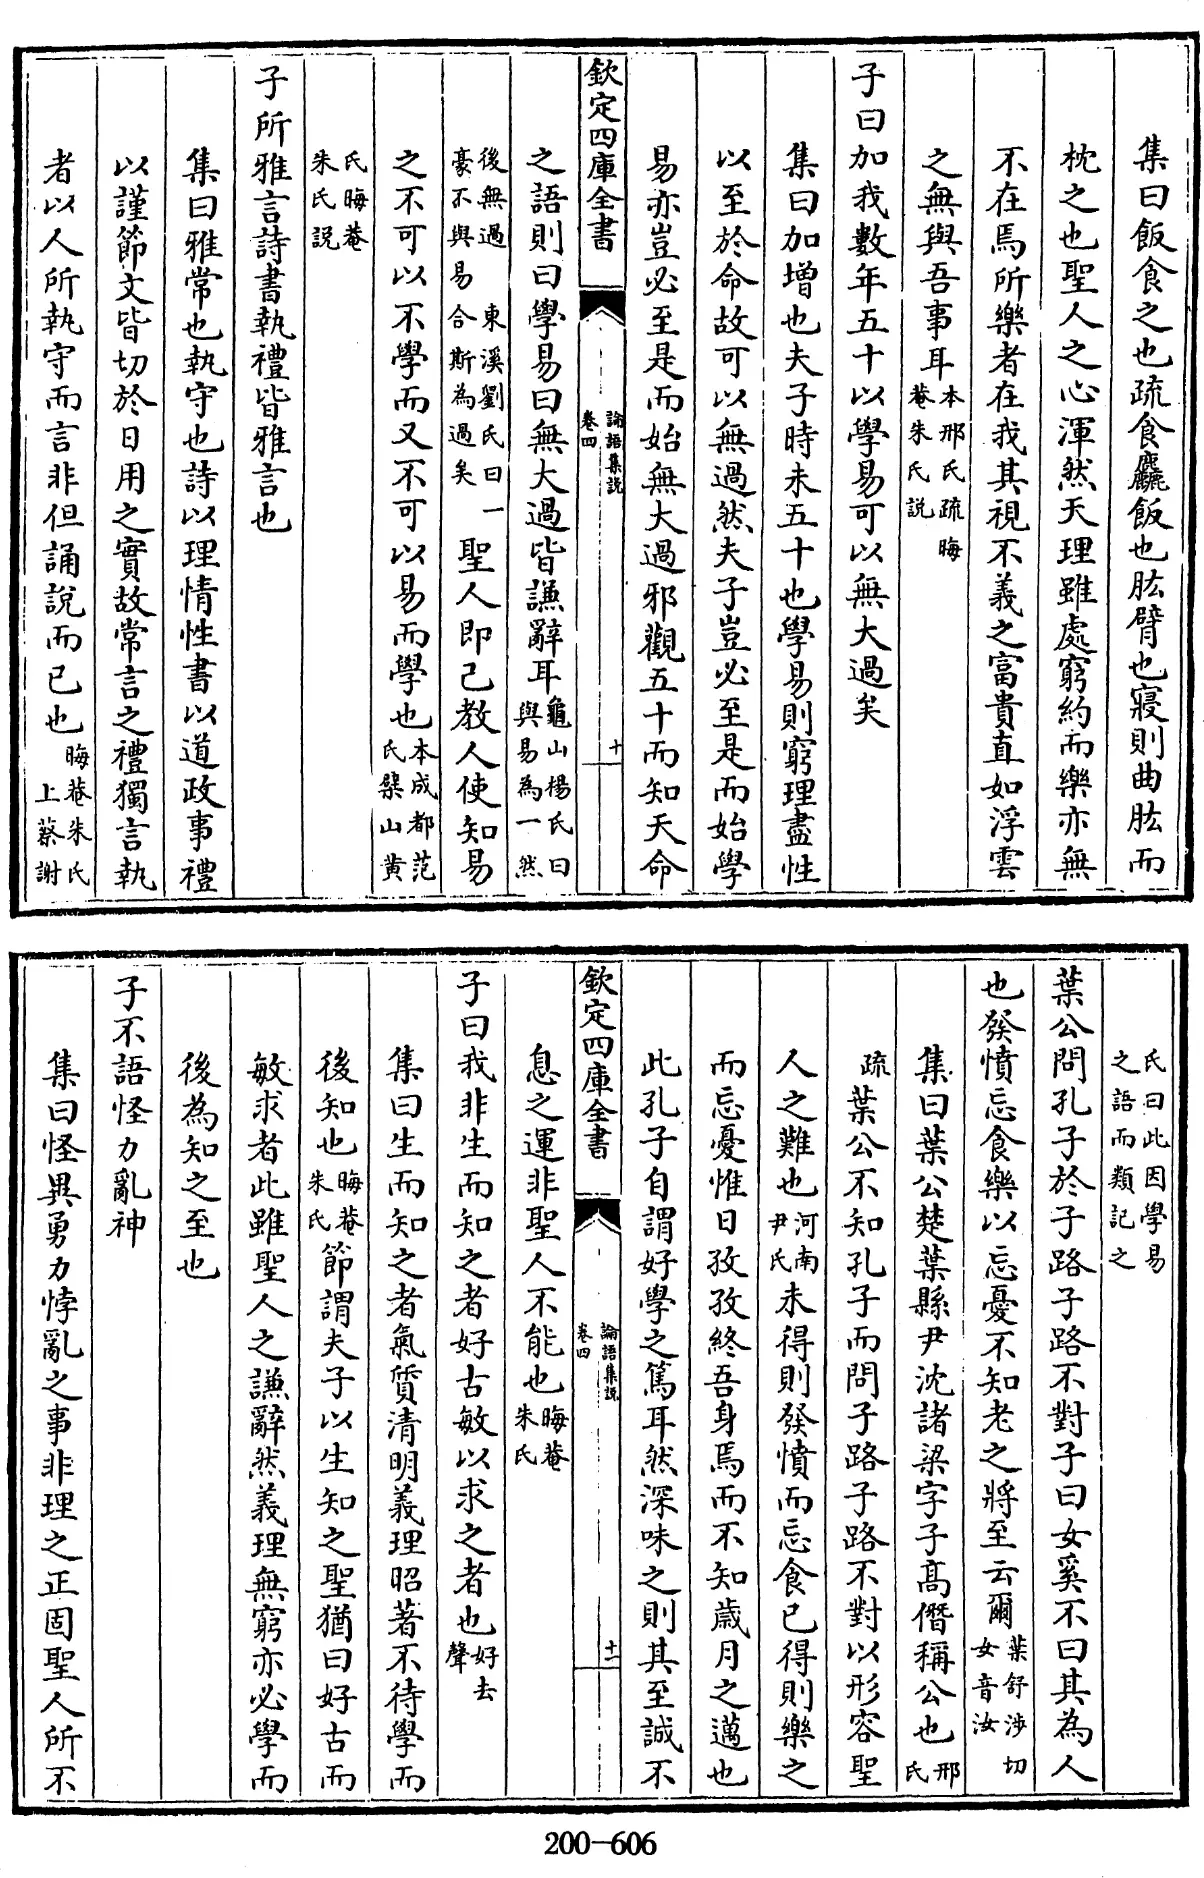 集曰飯食之也疏食麤飯也肱臂也寢則曲肱而
枕之也聖人之心渾然天理雖處窮約而樂亦無
不在焉所樂者在我其視不義之富貴直如浮雲
之無與吾事耳本邢氏疏晦菴朱氏說
子曰加我數年五十以學易可以無大過矣
集曰加增也夫子時未五十也學易則窮理盡性
以至於命故可以無過然夫子豈必至是而始學
易亦豈必至是而始無大過邪觀五十而知天命
欽定四庫全書
論語集説
卷四
十
之語則曰學易曰無大過皆謙辭耳龜山楊氏曰與易為一然
後無過豪不與易合斯為過矣東溪劉氏曰一聖人即己教人使知易
之不可以不學而又不可以易而學也本成都范氏檗山黄
氏晦菴朱氏説
子所雅言詩書執禮皆雅言也
集曰雅常也執守也詩以理情性書以道政事禮
以謹節文皆切於日用之實故常言之禮獨言執
者以人所執守而言非但誦說而已也晦菴朱氏上蔡謝
氏曰此因學易之語而類記之
葉公問孔子於子路子路不對子曰女奚不曰其為人
也發憤忘食樂以忘憂不知老之將至云爾葉舒涉切女音汝
集曰葉公楚葉縣尹沈諸梁字子高僭稱公也邢氏
疏葉公不知孔子而問子路子路不對以形容聖
人之難也河南尹氏未得則發憤而忘食已得則樂之
而忘憂惟日孜孜終吾身焉而不知歲月之邁也
此孔子自謂好學之篤耳然深味之則其至誠不
欽定四庫全書
論語集説
卷四
十一
息之運非聖人不能也晦菴朱氏
子曰我非生而知之者好古敏以求之者也好去聲
集曰生而知之者氣質清明義理昭著不待學而
後知也晦菴朱氏節謂夫子以生知之聖猶曰好古而
敏求者此雖聖人之謙辭然義理無窮亦必學而
後為知之至也
子不語怪力亂神
集曰怪異勇力悖亂之事非理之正固聖人所不
200-606